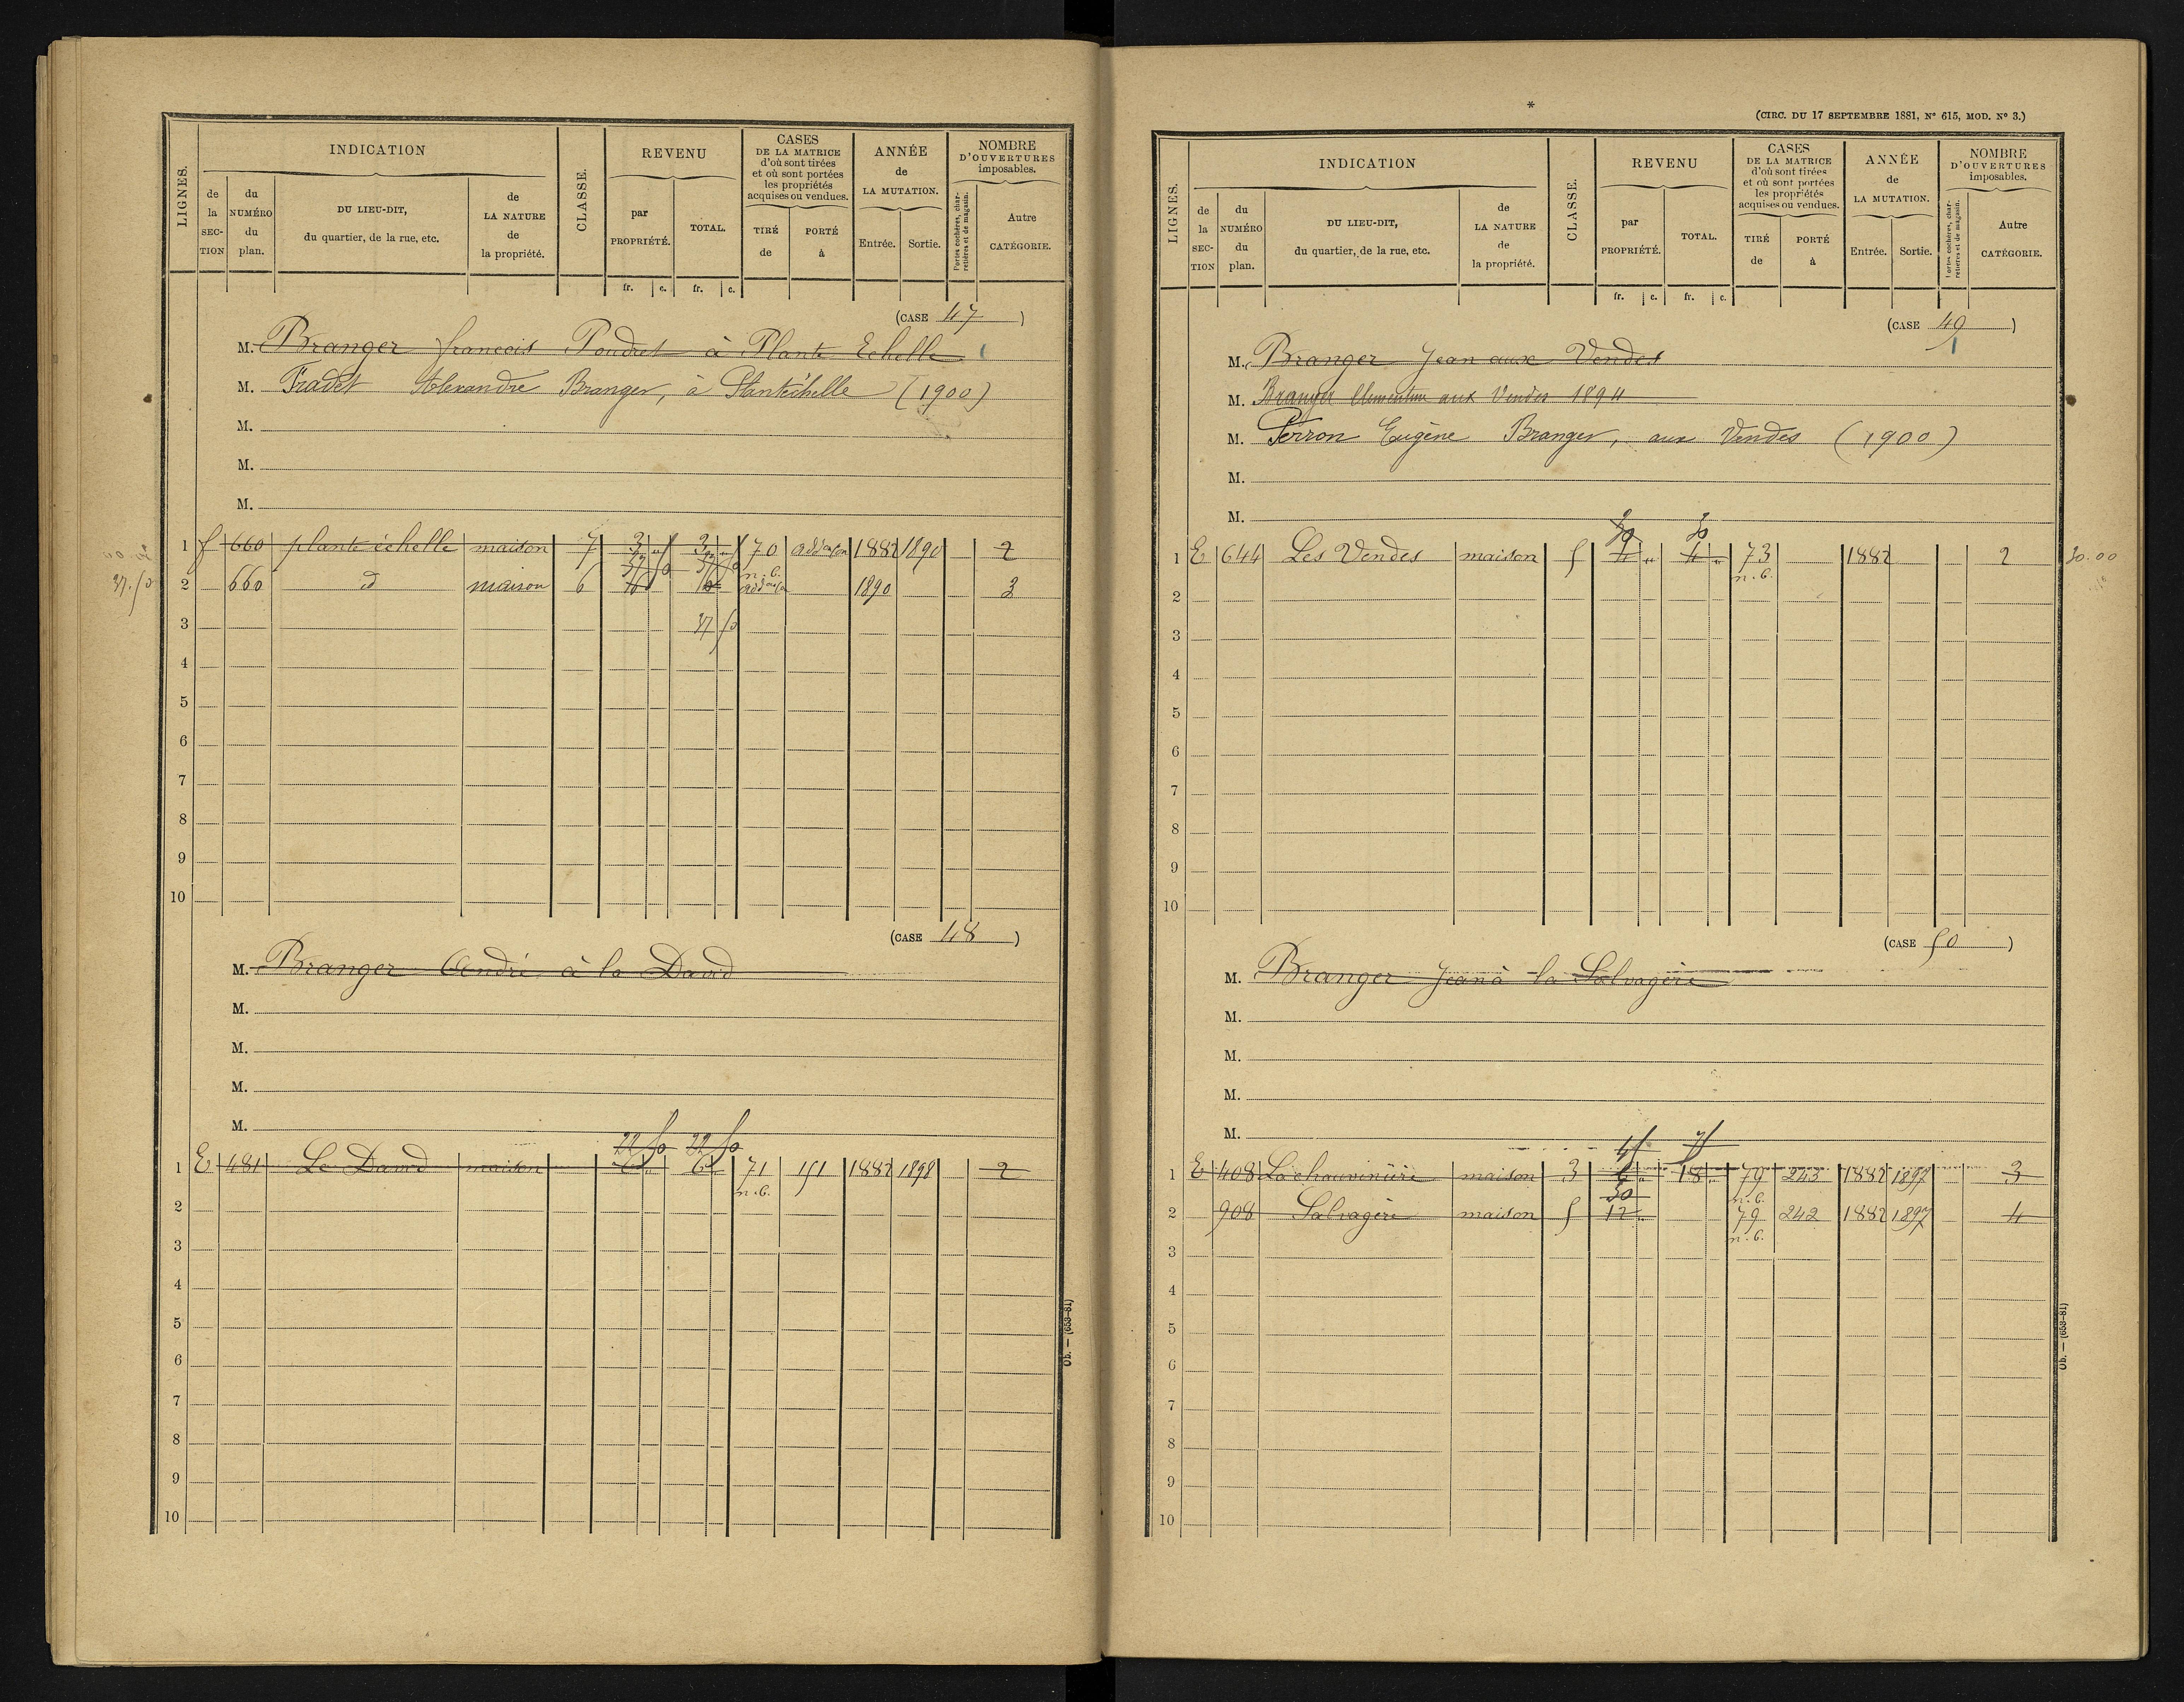 LIGNES.
INDICATION
de la SECTION
du NUMÉRO du plan.
DU LIEU-DIT, du quartier, de la rue, etc.
de LA NATURE de la propriété.
CLASSE.
REVENU
par PROPRIÉTÉ.
TOTAL.
fr. c. fr. c.
CASES DE LA MATRICE d'où sont tirées et où sont portées les propriétés acquises ou vendues.
TIRÉ de
PORTÉ à
ANNÉE de LA MUTATION.
Entrée. Sortie.
NOMBRE D'OUVERTURES imposables.
Portes cochères, charretières et de magasin.
Autre CATÉGORIE.
(CASE 47)
M. Branger francois Poudret à Plante Echelle
M. Fradet Alexandre Branger, à Plantéchelle (1900)
M.
M.
M.
1 f 660 plante échelle maison 7 3 3 70 1882 1890 2
37.50 2 660 d maison 6 37 50 37 50 n.c. 1890 3
3 37 50
4
5
6
7
8
9
10
(CASE 48)
M. Branger André à la Davud
M.
M.
M.
M.
22 50 22 50
1 E 481 Le Davud maison 6 6 71 151 1882 1898 2
n.c.
2
3
4
5
6
7
8
9
10
Ob. — (653-81)
*
(CIRC. DU 17 SEPTEMBRE 1881, N° 615, MOD. N° 3.)
LIGNES.
INDICATION
de la SECTION
du NUMÉRO du plan.
DU LIEU-DIT, du quartier, de la rue, etc.
de LA NATURE de la propriété.
CLASSE.
REVENU
par PROPRIÉTÉ.
TOTAL.
fr. c. fr. c.
CASES DE LA MATRICE d'où sont tirées et où sont portées les propriétés acquises ou vendues.
TIRÉ de
PORTÉ à
ANNÉE de LA MUTATION.
Entrée. Sortie.
NOMBRE D'OUVERTURES imposables.
Portes cochères, charretières et de magasin.
Autre CATÉGORIE.
(CASE 49)
M. Branger Jean aux Vendes
M. Branger Clementine aux Vendes 1894
M. Perron Eugène Branger, aux Vendes (1900)
M.
M.
30 30
1 E 644 Les Vendes maison 5 4 " 4 " 73 1882 2 30.00
n.c.
2
3
4
5
6
7
8
9
10
(CASE 50)
M. Branger Jean à la Salvagère
M.
M.
M.
M.
45 75
1 E 408 La chauvinière maison 3 6 18 79 243 1882 1897 3
30 n.c.
2 908 Salvagère maison 5 12 79 242 1882 1897 4
n.c.
3
4
5
6
7
8
9
10
Ob. — (653-81)